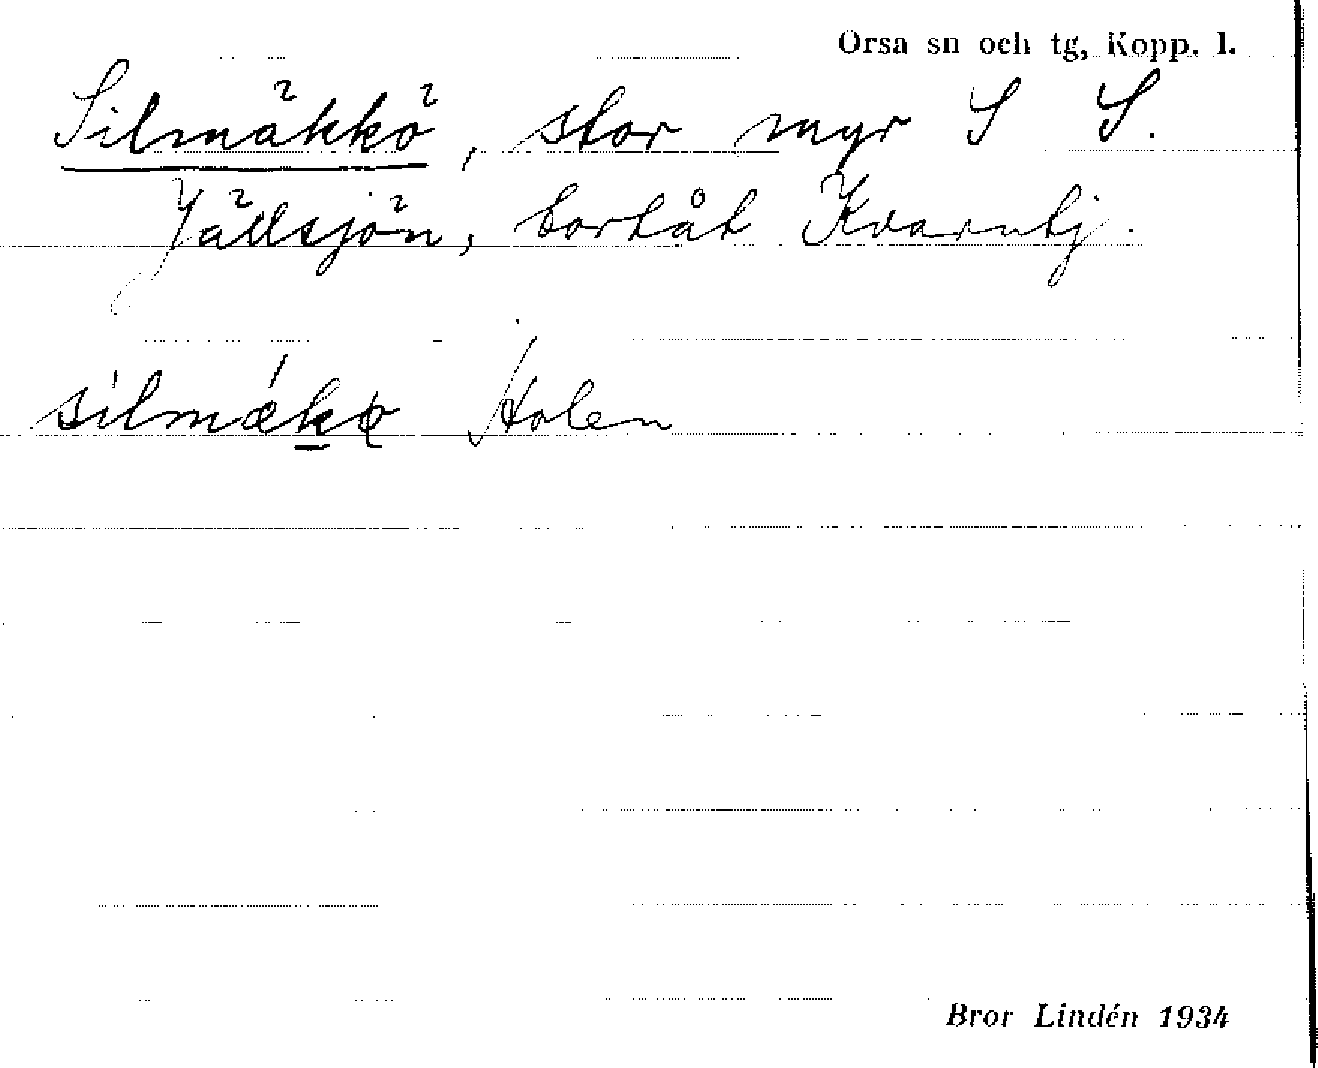 Orsa sn och tg, Kopp. l.
Silmäkkö, stor myr S S.
Jällsjön, bortåt Kvarntj.
silmækkö Holen
Bror Lindén 1934